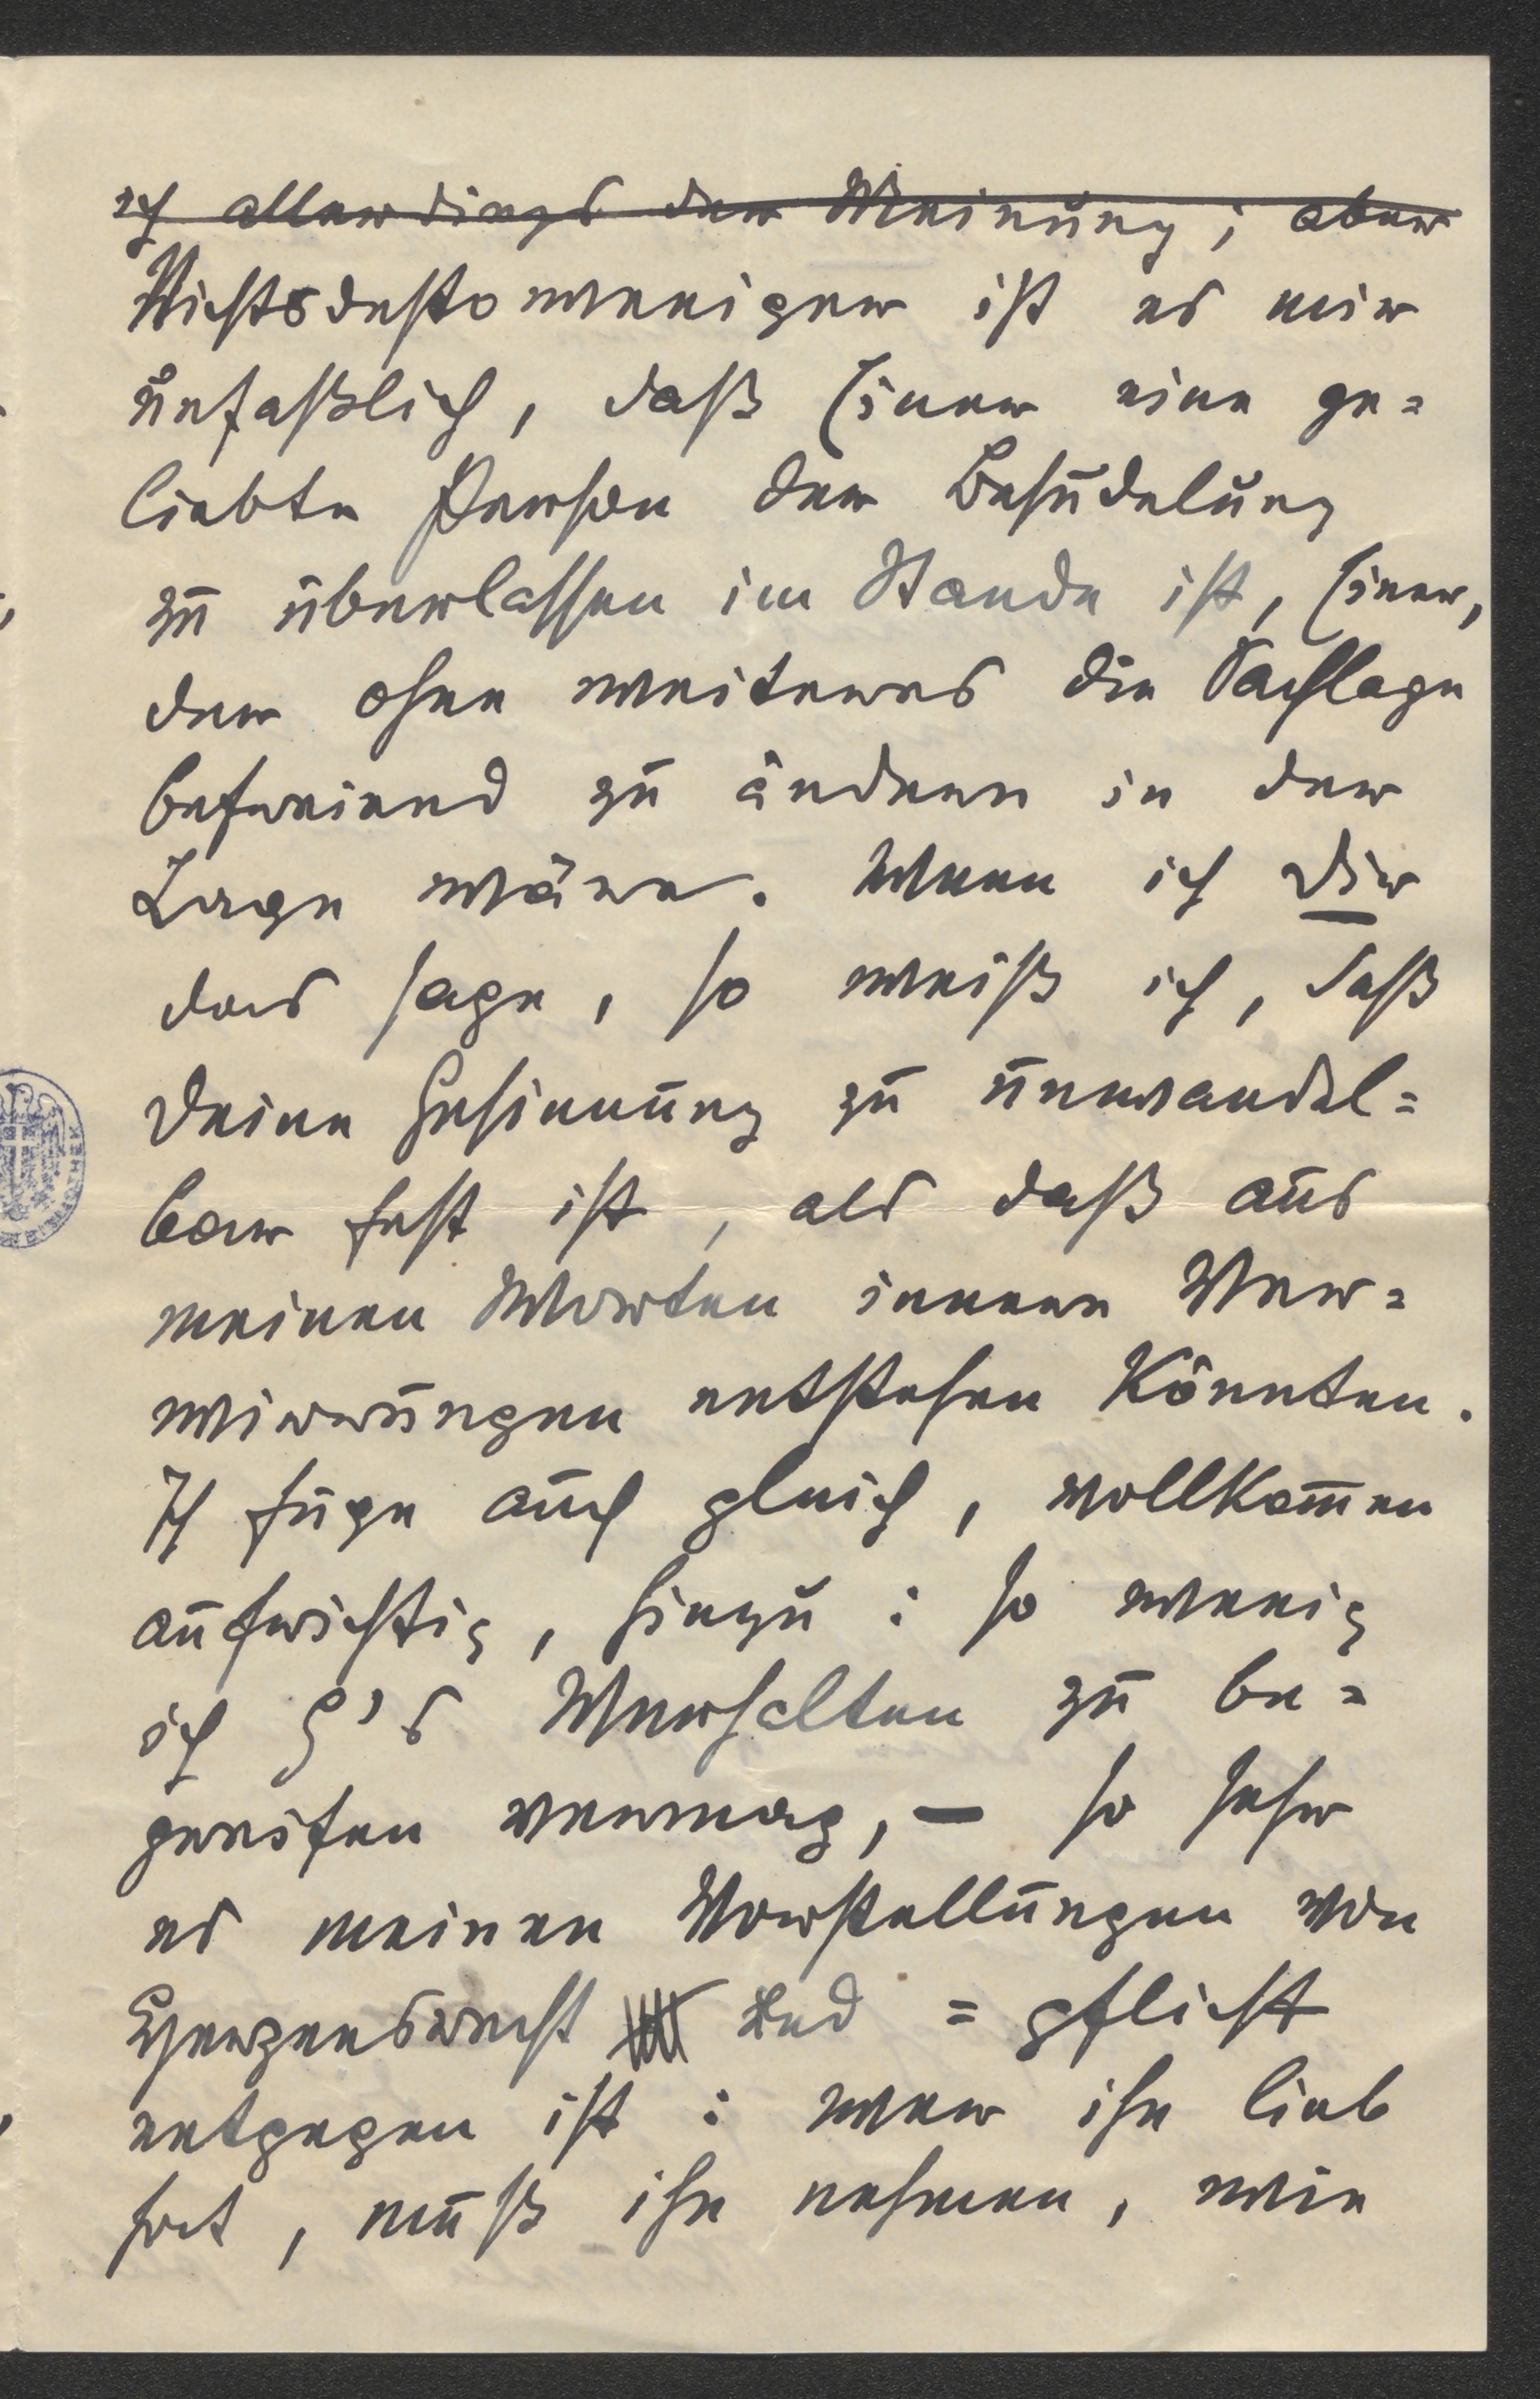 ich allerdings der Meinung; aber
Nichtsdestoweniger ist es mir
unfaßlich, daß Einer eine ge=
liebte Person der Besudelung
zu überlassen im Stande ist, Einer,
der ohne weiteres die Sachlage
befreiend zu ändern in der
Lage wäre. Wenn ich Dir
das sage, so weiß ich, daß
Deine Gesinnung zu unwandel=
bar fest ist, als daß aus
meinen Worten innere Ver=
wirrungen entstehen könnten.
Ich füge auch gleich, vollkom̅en
aufrichtig, hinzu: so wenig
ich G's Verhalten zu be=
greifen vermag, – so sehr
es meinen Vorstellungen von
Herzensrecht und =pflicht
entgegen ist: wer ihn lieb
hat, muß ihn nehmen, wie